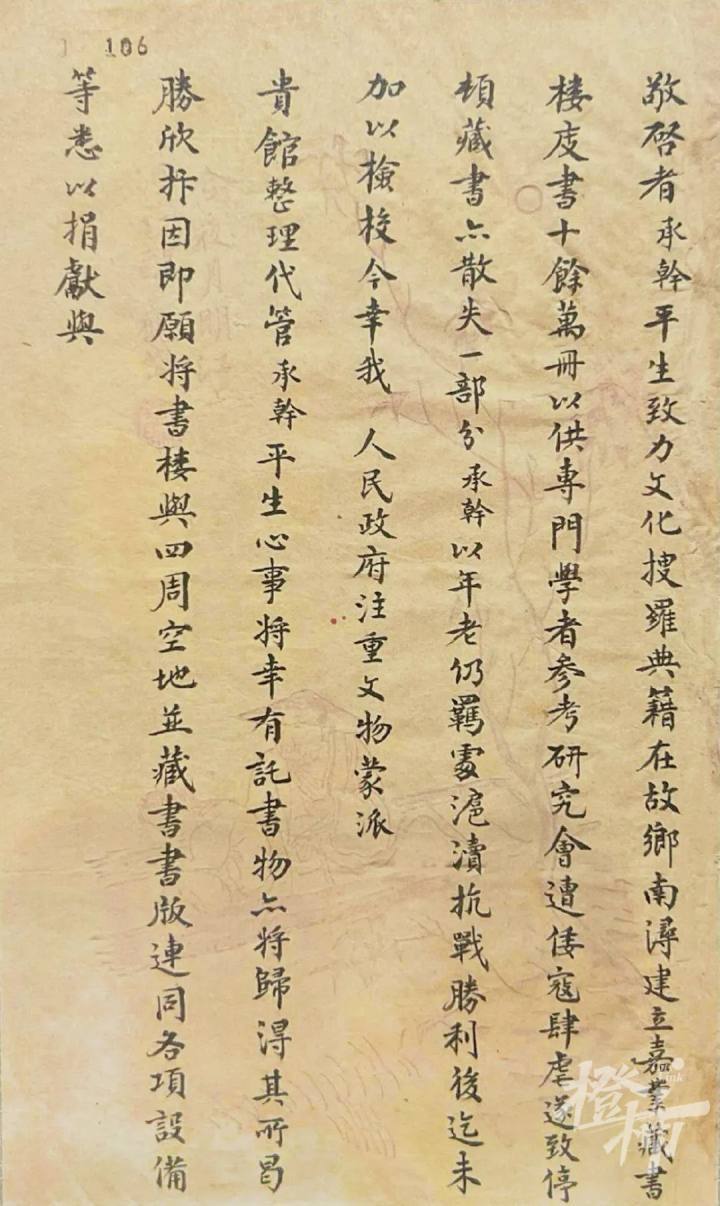 106
敬啓者承幹平生致力文化搜羅典籍在故鄉南潯建立嘉業藏書
楼庋書十餘萬冊以供專門學者參考研究會遭倭寇肆虐遂致停
頓藏書亦散失一部分承幹以年老仍羈處滬瀆抗戰勝利後迄未
加以檢校今幸我 人民政府注重文物蒙派
貴館整理代管承幹平生心事将幸有託書物亦将歸得其所曷
勝欣抃因即願将書楼與四周空地並藏書書版連同各項設備
等悉以捐獻與
橙柿